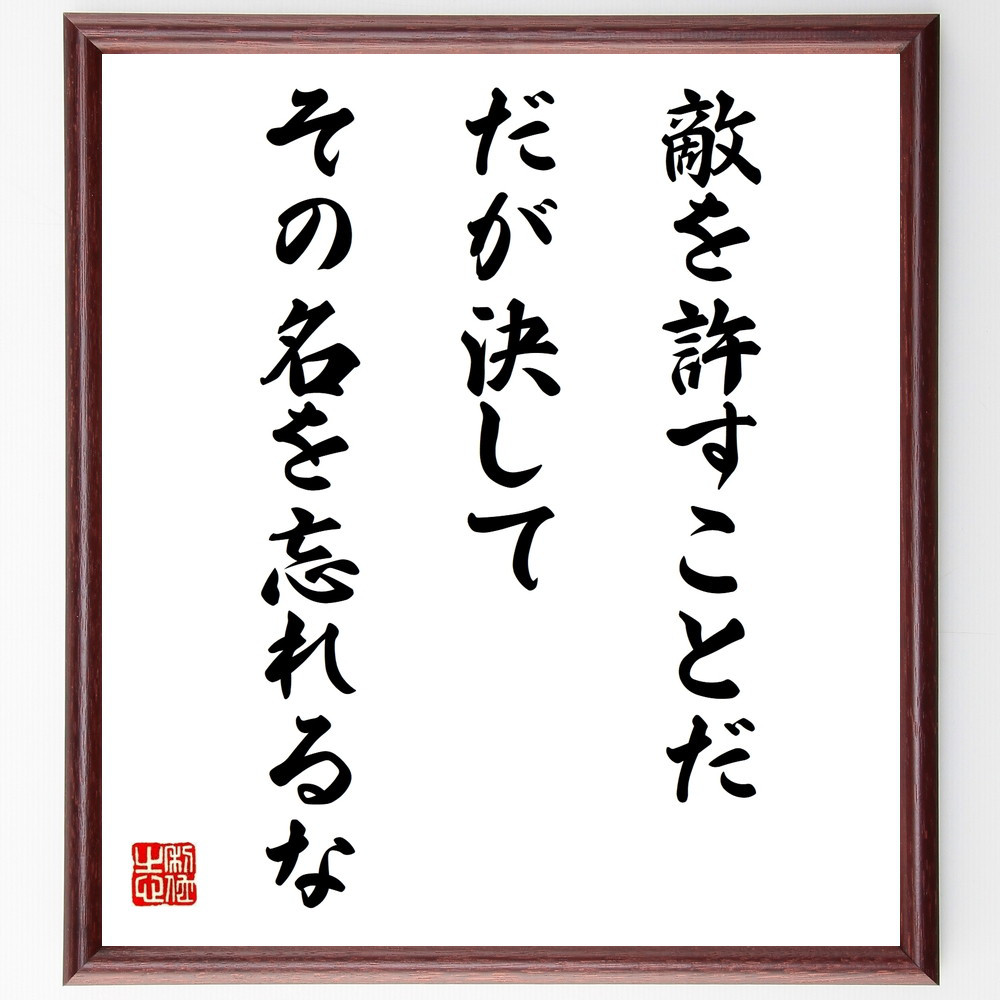 敵を許すことだ
だが決して
その名を忘れるな